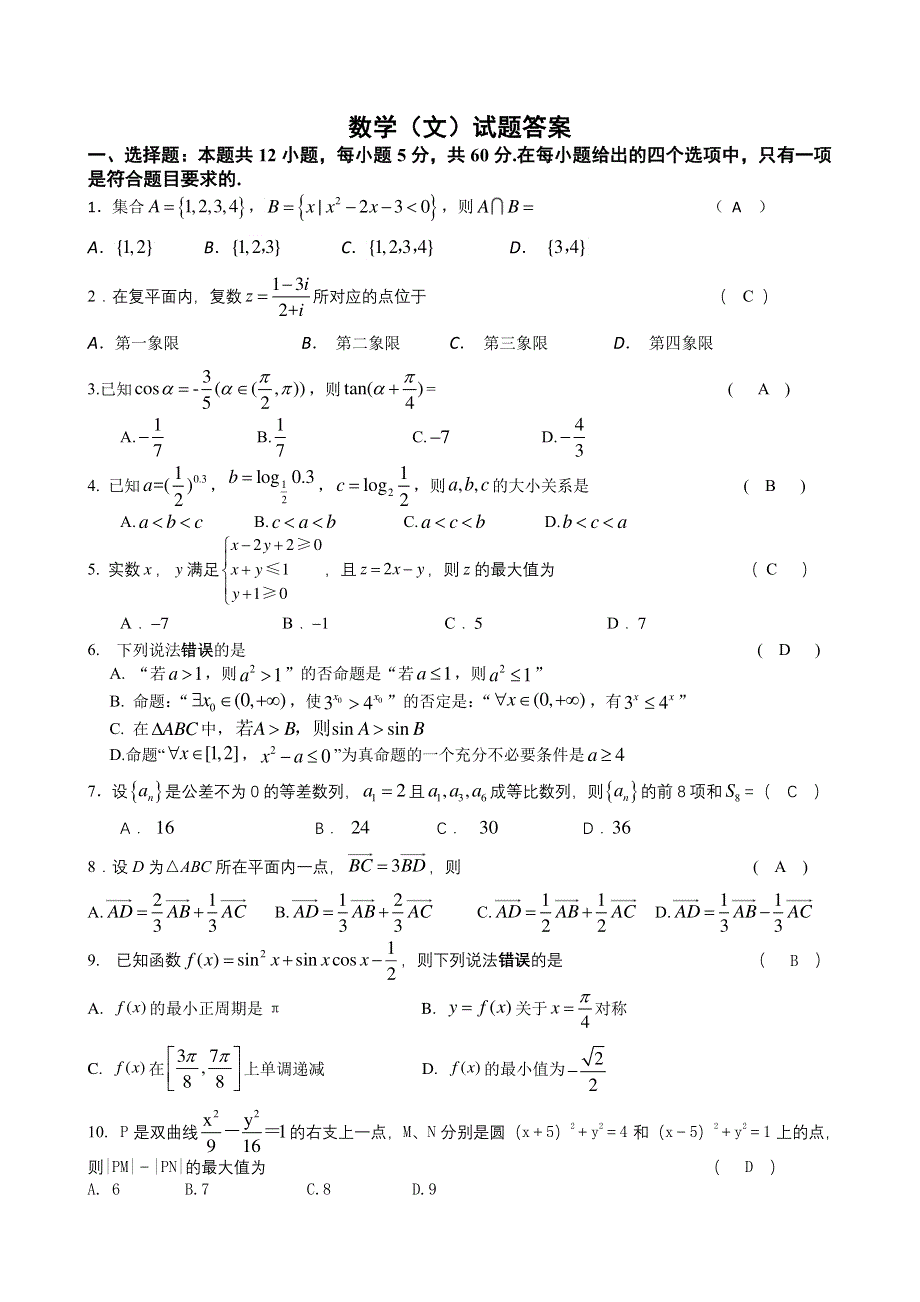 数学（文）试题答案
一、选择题：本题共 12 小题，每小题 5 分，共 60 分.在每小题给出的四个选项中，只有一项
是符合题目要求的.
1．集合 A={1,2,3,4}，B={x|x²−2x−3<0}，则 A⋂B=（ A ）
A．{1,2} B．{1,2,3} C．{1,2,3,4} D．{3,4}
2．在复平面内，复数 z=(1−3i)/(2+i) 所对应的点位于（ C ）
A．第一象限 B． 第二象限 C． 第三象限 D． 第四象限
3.已知 cosα=-3/5(α∈(π/2,π))，则 tan(α+π/4)=( A )
A.−1/7 B.1/7 C.−7 D.−4/3
4. 已知 a=(1/2)^0.3，b=log_{1/2}0.3，c=log₂1/2，则 a,b,c 的大小关系是( B )
A.a<b<c B.c<a<b C.a<c<b D.b<c<a
5. 实数 x， y 满足 {x−2y+2≥0 x+y≤1 y+1≥0，且 z=2x−y，则 z 的最大值为（ C ）
A．−7 B．−1 C．5 D．7
6. 下列说法错误的是( D )
A. “若 a>1，则 a²>1”的否命题是“若 a≤1，则 a²≤1”
B. 命题：“∃x₀∈(0,+∞)，使 3^{x₀}>4^{x₀}”的否定是：“∀x∈(0,+∞)，有 3^x≤4^x”
C. 在ΔABC 中，若A>B，则sin A>sin B
D.命题“∀x∈[1,2]，x²−a≤0”为真命题的一个充分不必要条件是 a≥4
7．设{aₙ}是公差不为 0 的等差数列，a₁=2 且 a₁,a₃,a₆ 成等比数列，则{aₙ}的前 8 项和 S₈=（ C ）
A． 16 B． 24 C． 30 D．36
8．设 D 为△ABC 所在平面内一点，BC=3BD，则( A )
A.AD=2/3AB+1/3AC B.AD=1/3AB+2/3AC C.AD=1/2AB+1/2AC D.AD=1/3AB−1/3AC
9. 已知函数 f(x)=sin²x+sin x cos x−1/2，则下列说法错误的是（ B ）
A. f(x)的最小正周期是 π B. y=f(x)关于 x=π/4 对称
C. f(x)在[3π/8,7π/8]上单调递减 D. f(x)的最小值为−√2/2
10. P 是双曲线 x²/9−y²/16=1 的右支上一点，M、N 分别是圆（x＋5）²＋y²＝4 和（x－5）²＋y²＝1 上的点，
则|PM|－|PN|的最大值为（ D ）
A. 6 B.7 C.8 D.9